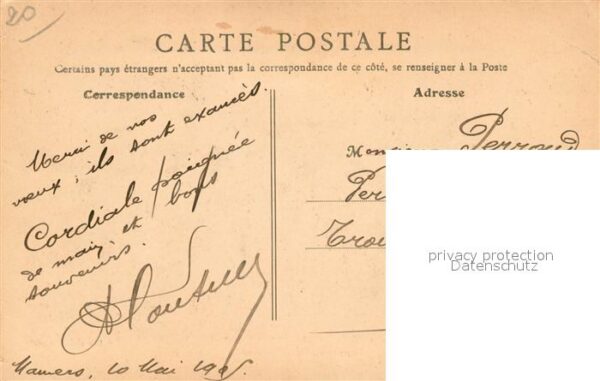 20
CARTE POSTALE
Certains pays étrangers n'acceptant pas la correspondance de ce côté, se renseigner à la Poste
Correspondance
Merci de nos
vœux, ils sont exaucés.
Cordiale poignée
de main et bons
souvenirs.
Mamers, 10 Mai
Adresse
Perroud
privacy protection
Datenschutz